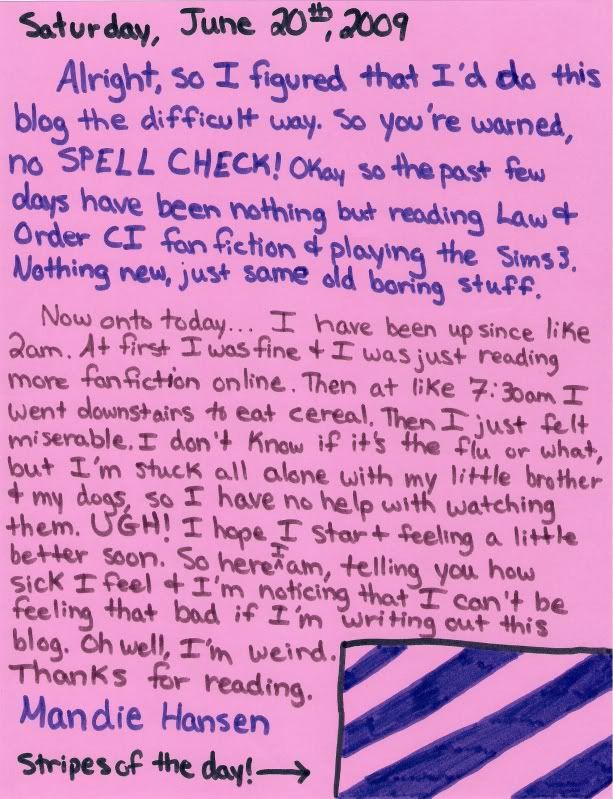 Saturday, June 20th, 2009
Alright, so I figured that I'd do this
blog the difficult way. So you're warned,
no SPELL CHECK! Okay so the past few
days have been nothing but reading Law &
Order CI fan fiction & playing the Sims 3.
Nothing new, just same old boring stuff.
Now onto today... I have been up since like
2am. At first I was fine & I was just reading
more fanfiction online. Then at like 7:30am I
went downstairs to eat cereal. Then I just felt
miserable. I don't know if it's the flu or what,
but I'm stuck all alone with my little brother
& my dogs, so I have no help with watching
them. UGH! I hope I start feeling a little
better soon. So here I am, telling you how
sick I feel & I'm noticing that I can't be
feeling that bad if I'm writing out this
blog. Oh well, I'm weird.
Thanks for reading.
Mandie Hansen
Stripes of the day! →